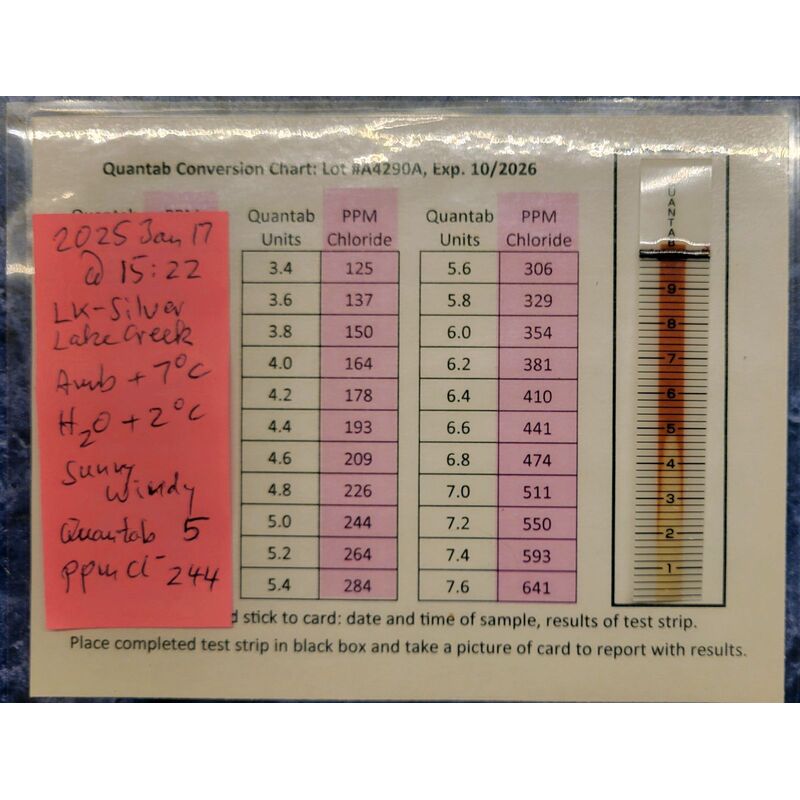 Quantab Conversion Chart: Lot #A4290A, Exp. 10/2026
2025 Jan 17
@ 15:22
LK-Silver
Lake Creek
Amb + 7°C
H2O + 2°C
Sunny
Windy
Quantab 5
ppm Cl⁻ 244
Quantab Units PPM Chloride
3.4 125
3.6 137
3.8 150
4.0 164
4.2 178
4.4 193
4.6 209
4.8 226
5.0 244
5.2 264
5.4 284
Quantab Units PPM Chloride
5.6 306
5.8 329
6.0 354
6.2 381
6.4 410
6.6 441
6.8 474
7.0 511
7.2 550
7.4 593
7.6 641
QUANTAB
9
8
7
6
5
4
3
2
1
stick to card: date and time of sample, results of test strip.
Place completed test strip in black box and take a picture of card to report with results.